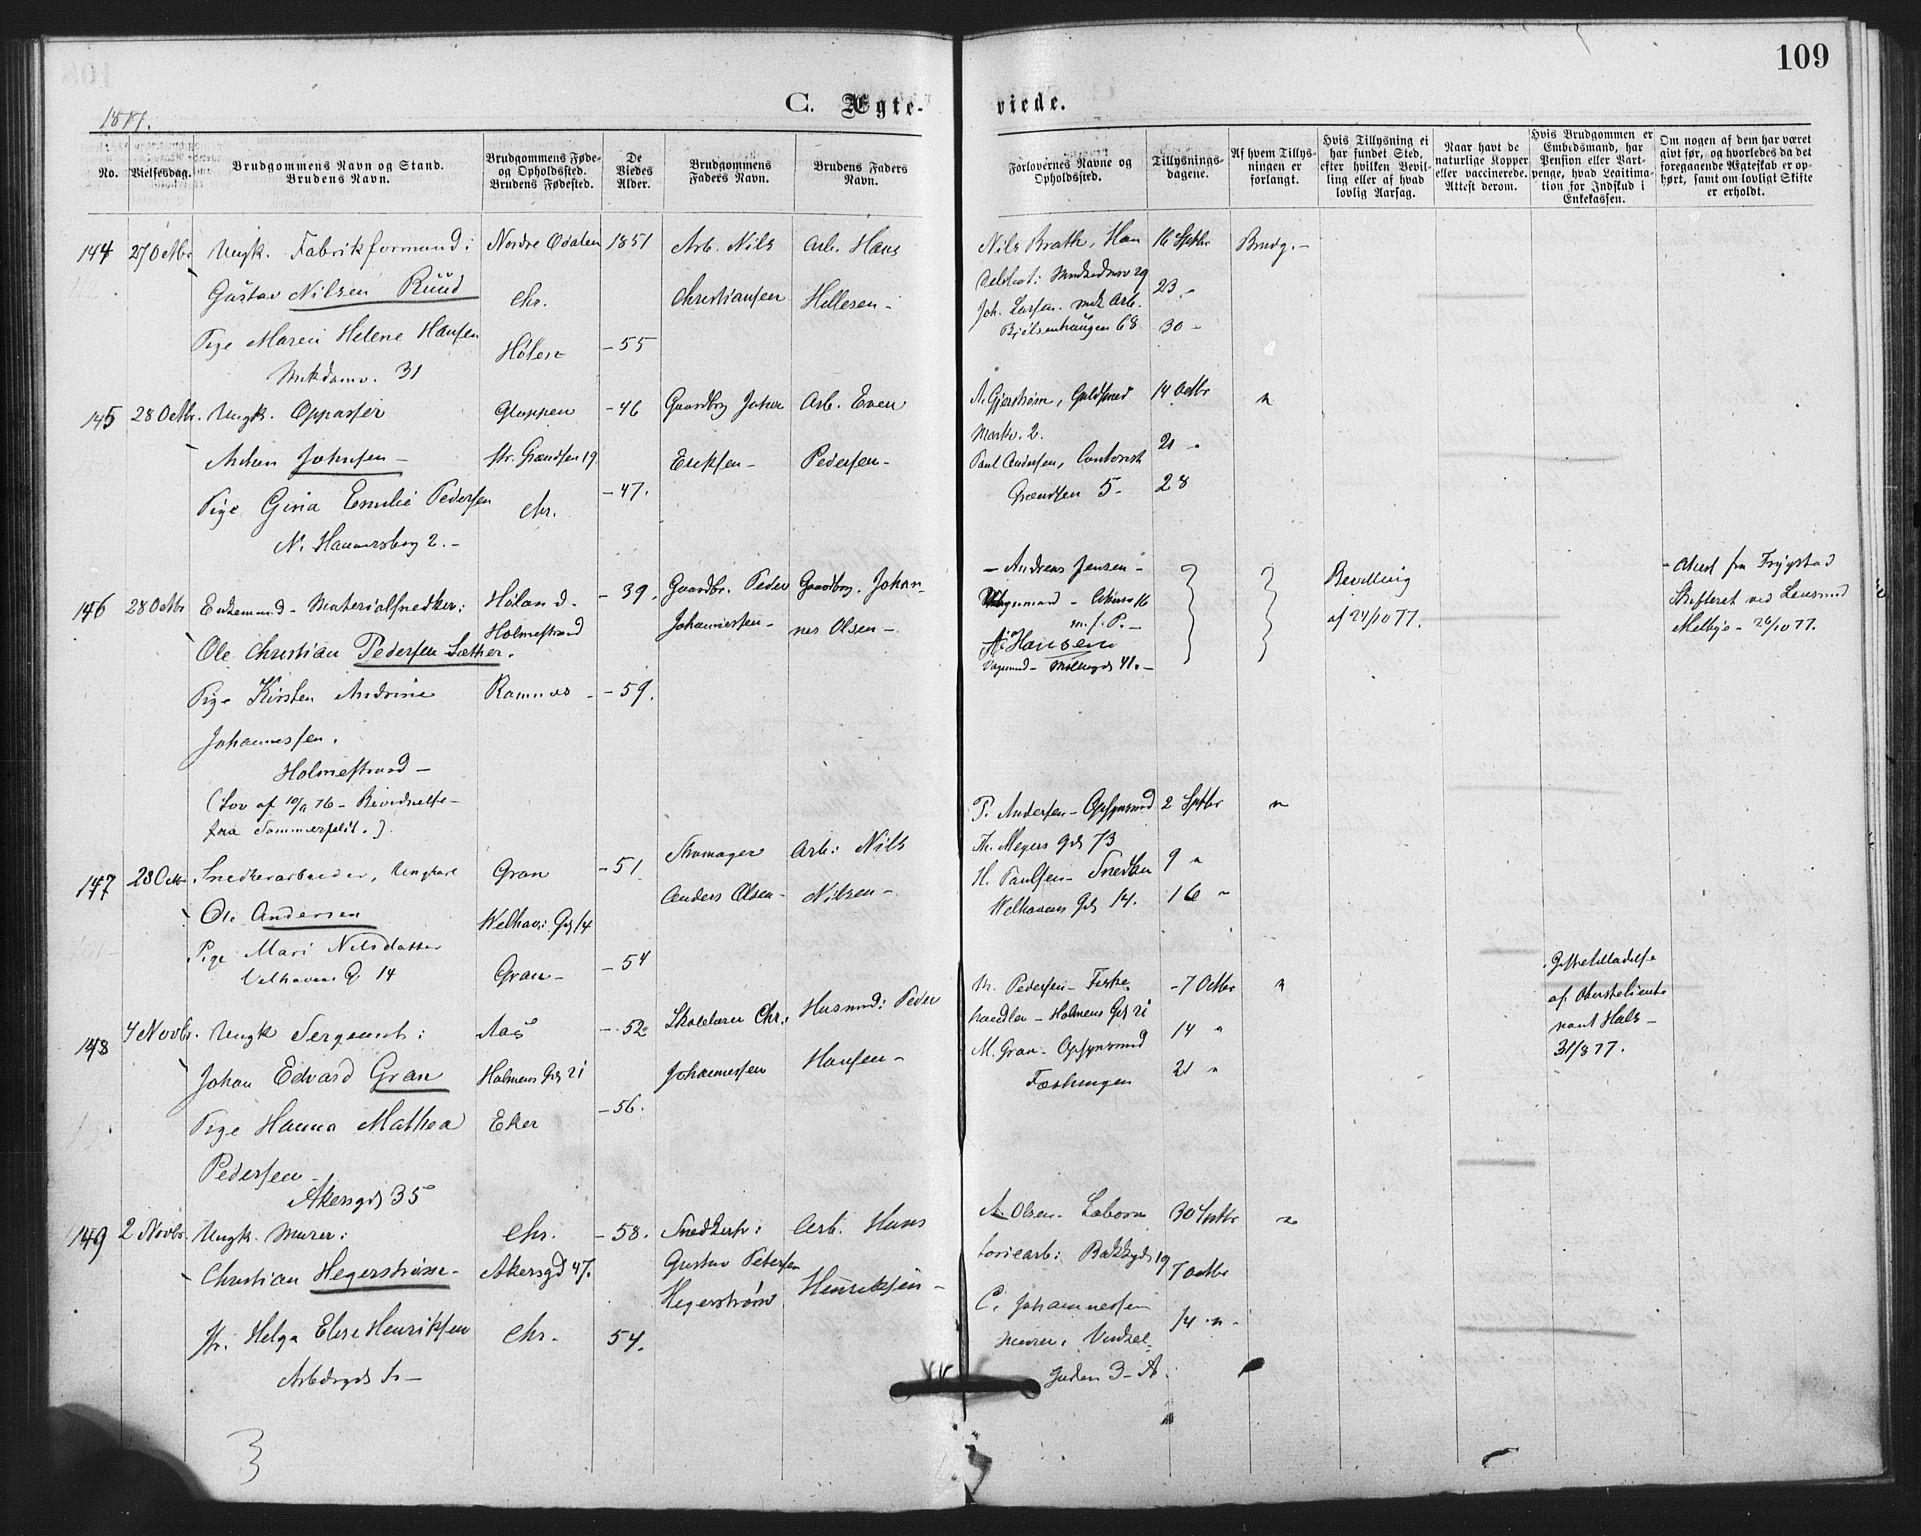 109
C. Ægte-
viede.
1877.
No.
Vielsesdag.
Brudgommens Navn og Stand.
Brudens Navn.
Brudgommens Føde-
og Opholdssted.
Brudens Fødested.
De
Viedes
Alder.
Brudgommens
Faders Navn.
Brudens Faders
Navn.
Forlovernes Navne og
Opholdssted.
Tillysnings-
dagene.
Af hvem Tillys-
ningen er
forlangt.
Hvis Tillysning ei
har fundet Sted,
efter hvilken Bevil-
ling eller af hvad
lovlig Aarsag.
Naar havt de
naturlige Kopper
eller vaccinerede.
Attest derom.
Hvis Brudgommen er
Embedsmand, har
Pension eller Vart-
penge, hvad Legitima-
tion for Indskud i
Enkekassen.
Om nogen af dem har været
givt før, og hvorledes da det
foregaaende Ægteskab er op-
hørt, samt om lovligt Skifte
er erholdt.
144 27 Octbr. Ungk. Fabrikformand: Nordre Odalen 1851 Arb. Nils Arb. Hans
Gustav Nilsen Ruud Chr. Christiansen Hellesen -
Pige Maren Helene Hansen Hölen - 55
Mkdamv. 31
Nils Brath, 16 Septbr Brudg. -
23 -
Joh. Larsen. mek Arb.
Bjölsenhaugen 68 30 -
145 28 Octbr. Ungk. Oppasser Gloppen - 46 Gaardbrg Johan Arb. Even
Anton Johnsen - Str. Grændsen 19 Eriksen - Pedersen -
Pige Gina Emilie Pedersen Chr. - 47.
N. Hammersborg 2. -
A. Gjerstrøm, Guldsmed 14 Octbr "
Markv. 2.
Paul Andersen, Contorist 21 "
Grændsen 5 - 28
146 28 Octbr Enkemand - Materialsnedker: Höland - - 39. Gaardbr. Peder Gaardbrg. Johan-
Ole Christian Pedersen Sæther. Holmestrand Johannessen - nes Olsen -
Pige Kirsten Andrine Ramnæs - - 59.
Johannessen.
Holmestrand -
- Andreas Jensen -
m. f. P. -
A. Hansen
Bevilling
af 24/10 77.
Skifteret ved Lensmd
Melbye - 26/10 77.
147 28 Octbr. Snedkerarbeider, Ungkarl Gran - 51 Skomager Arb: Nils
Ole Andersen Welhav: Gd 14 Anders Olsen - Nilsen -
Pige Mari Nilsdatter Gran - - 54
Velhavens G. 14
P. Andersen - Opsynsmd 2 Septbr "
Th. Meyers Gd 73
H. Paulsen - Snedker 9 "
Welhavens Gd 14. 16 "
148 4 Novbr. Ungk Sergeant: Aas - 52 Skolelærer Chr: Husmd: Peder
Johan Edvard Gran Holmens Gd 21 Johannessen Hansen -
Pige Hanna Mathea Eker - 56.
Pedersen -
Akersgd 35
M. Pedersen - Fiske- - 7 Octbr "
handler - Holmens Gd 21
M. Gran - Opsynsmd 14 "
Fæstningen 21 "
Giftetilladelse
af Oberstlieute-
nant Hals -
31/8 77.
149 2 Novbr. Ungk. Murer: Chr. - 58. Snedkersv: Arb. Hans
Christian Hegerstrøm - Akersgd 47. Gustav Petersen Henriksen -
Hegerstrøm
Helga Elise Henriksen Chr. 54.
A. Olsen - Labora- 30 Septbr "
toriearb: Bakkegd 19 7 Octbr
C. Johannessen 14 "
Murer, Vinkel-
gaden 3 - A.
3